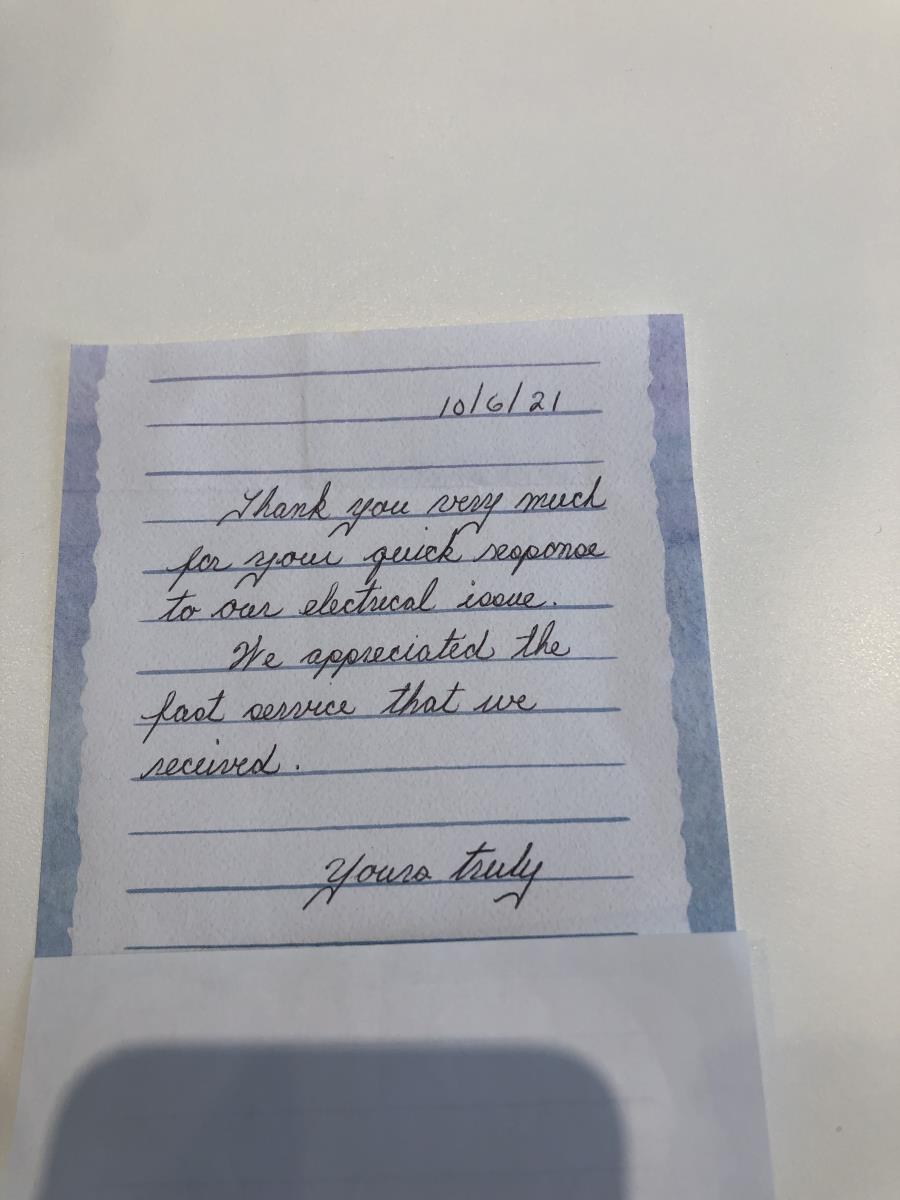 10/6/21
Thank you very much
for your quick response
to our electrical issue.
We appreciated the
fast service that we
received.
Yours truly